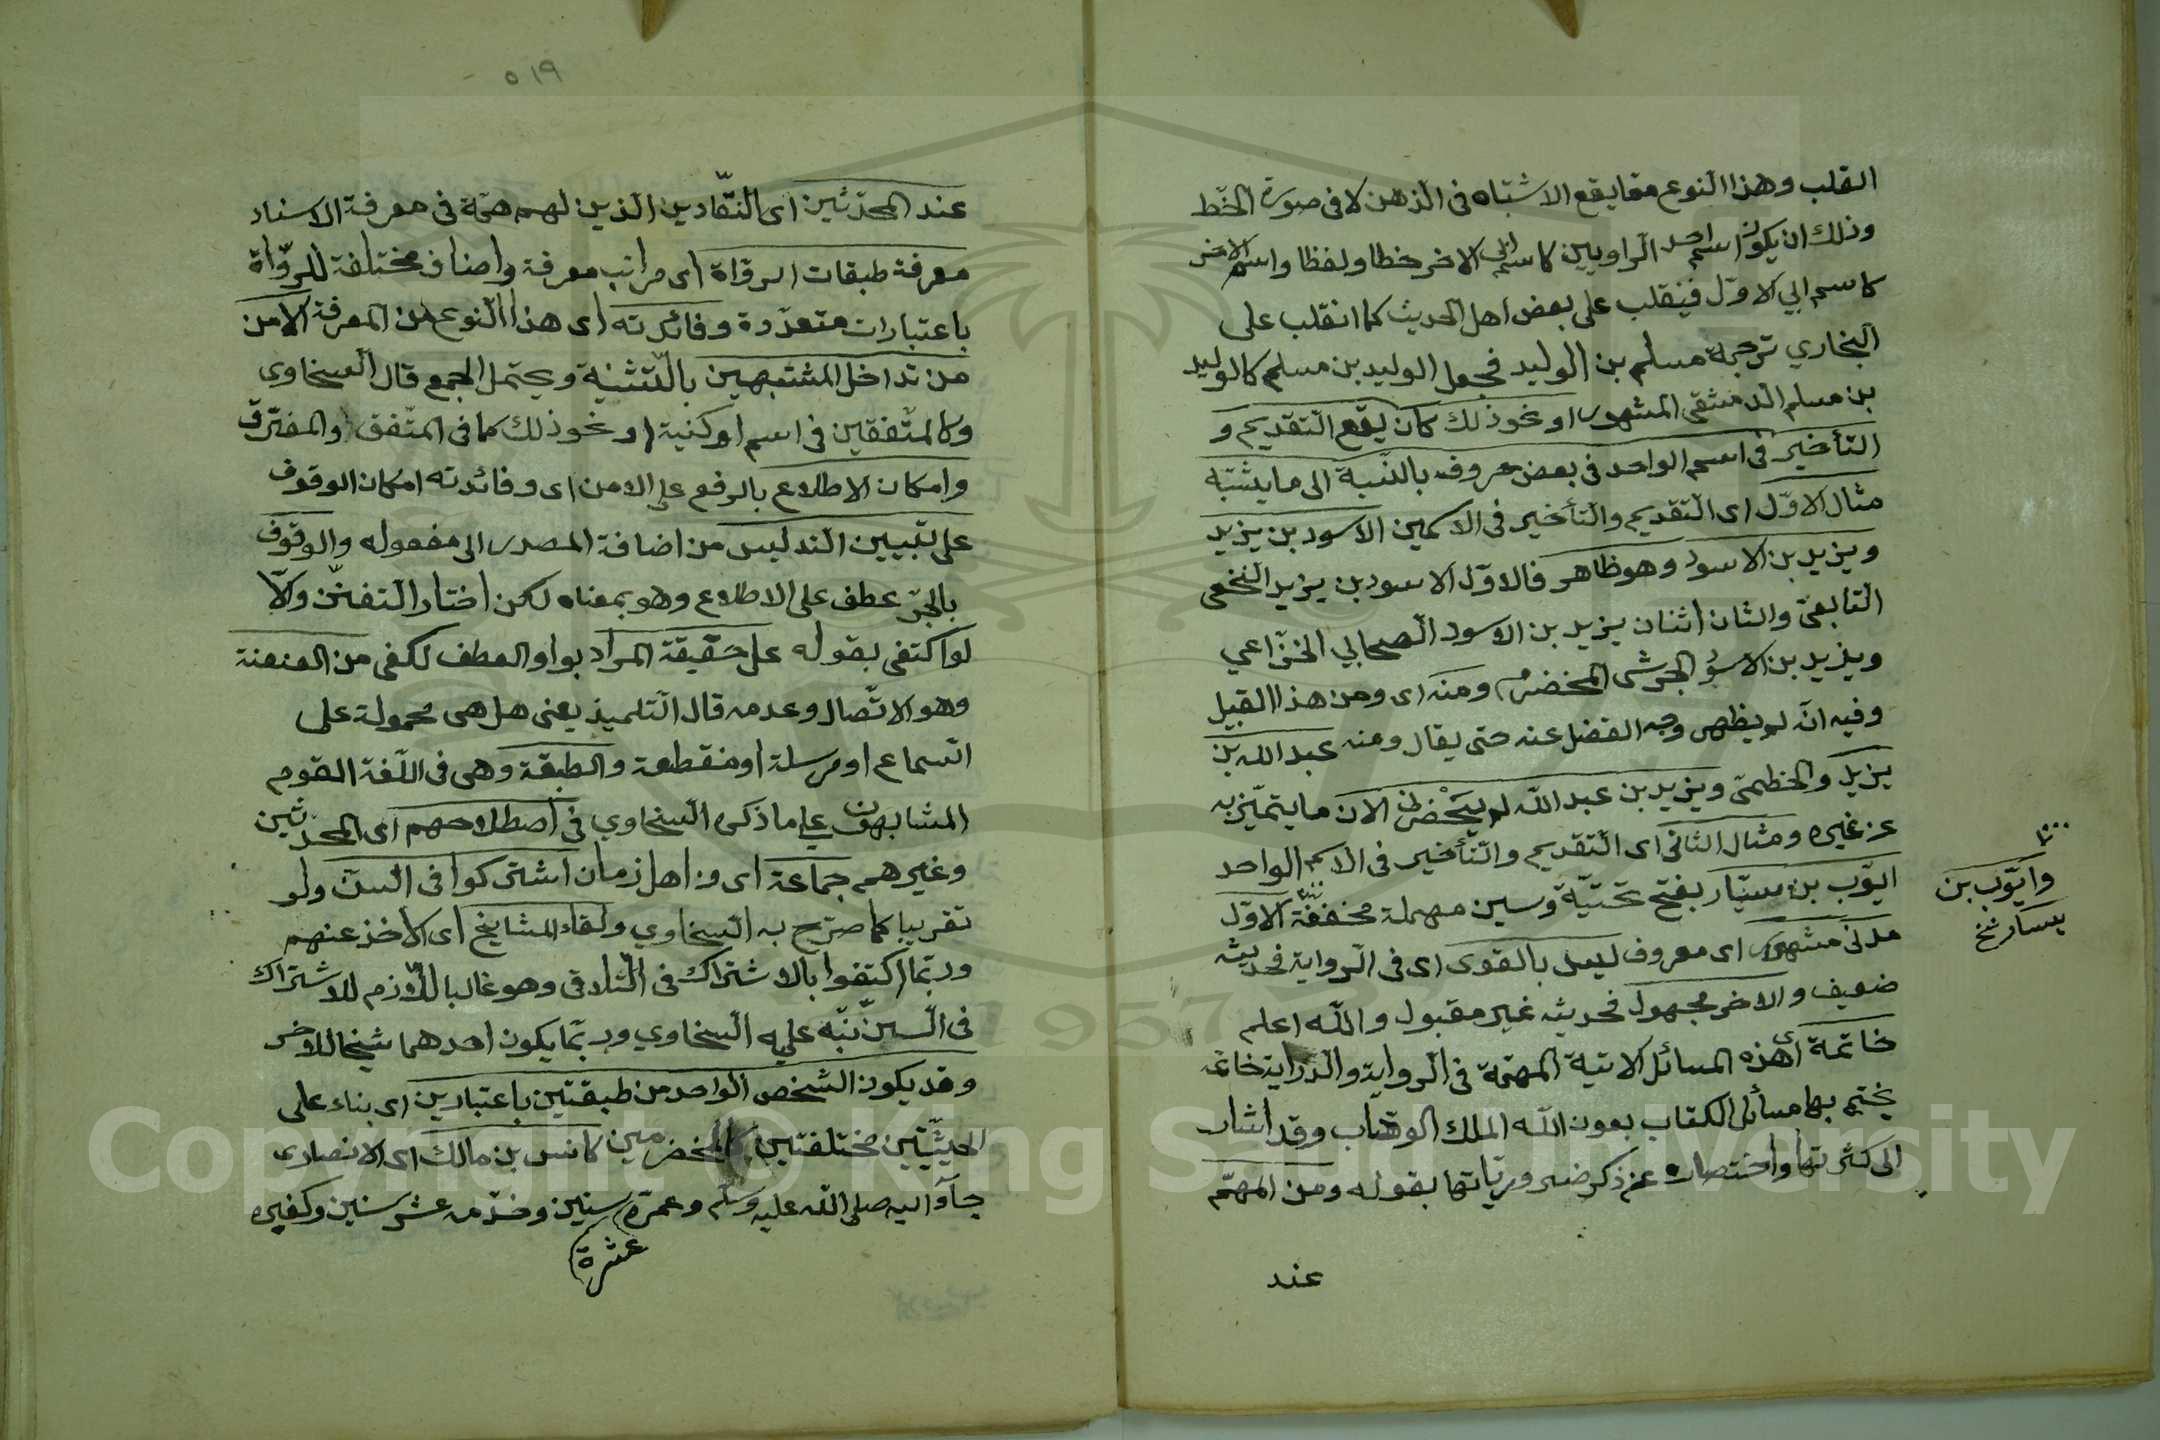 القلب وهذا النوع مما يقع الاشتباه فى الذهن لا فى صورة الخط
وذلك ان يكون اسم احد الراويين كاسم ابي الاخر خطا ولفظا واسم الاخر
كاسم ابي الاوّل فينقلب على بعض اهل الحديث كما انقلب على
البخاري ترجمة مسلم بن الوليد فجعل الوليد بن مسلم كالوليد
بن مسلم الدمشقى المشهور او نحو ذلك كان يقع التقديم و
التأخير فى اسم الواحد فى بعض حروفه بالنسبة الى ما يشتبه
مثال الاوّل اى التقديم والتأخير فى الاسمين الاسود بن يزيد
ويزيد بن الاسود وهو ظاهر فالاوّل الاسود بن يزيد النخعى
التابعىّ والثان اثنان يزيد بن الاسود الصحابي الخزاعي
ويزيد بن الاسود الجرشى المخضرم ومنه اى ومن هذا القبيل
وفيه انّه لم يظهر وجه الفصل عنه حتى يقال ومنه عبد الله بن
يزيد والخطمىّ ويزيد بن عبد الله لم يحضرنى الان ما يتميّز به
عن غيره ومثال الثانى اى التقديم والتأخير فى الاسم الواحد
ايّوب بن سيّار بفتح تحتيّة وسين مهملة مخففة الاوّل
وايّوب بن
يسار نسخ
مدنىّ مشهور اى معروف ليس بالقوى اى فى الرواية فحديثه
ضعيف والاخر مجهول فحديثه غير مقبول والله اعلم
خاتمة اى هذه المسائل الاتية المهمّة فى الرواية والدراية خاتمة
يختم بها مسائل الكتاب بعون الله الملك الوهاب وقد اشار
الى كثرتها واختصاره عن ذكر ضروريّاتها بقوله ومن المهمّ
عند
٥١٩
عند المحدّثين اى النقّادين الذين لهم همّة فى معرفة الاسناد
معرفة طبقات الرواة اى مراتب معرفة واصناف مختلفة للروّاة
باعتبارات متعدّدة وفائدته اى هذا النوع من المعرفة الامن
من تداخل المشتبهين بالتثنية ويحتمل الجمع قال السخاوي
وكالمتّفقين فى اسم او كنية او نحو ذلك كما فى المتّفق والمفترق
وامكان الاطلاع بالرفع على الامن اى وفائدته امكان الوقوف
على تبيين التدليس من اضافة المصدر الى مفعوله والوقوف
بالجرّ عطف على الاطلاع وهو بمعناه لكن اختار التفنّن والّا
لو اكتفى بقوله على حقيقة المراد بواو العطف لكفى من العنعنة
وهو الاتّصال وعدمه قال التلميذ يعنى هل هى محمولة على
السماع او مرسلة او منقطعة والطبقة وهى فى اللغة القوم
المشابهون على ما ذكره السخاوي فى اصطلاحهم اى المحدّثين
وغيرهم جماعة اى من اهل زمان اشتركوا فى السنّ ولو
تقريبا كما صرّح به السخاوي ولقاء المشايخ اى الاخذ عنهم
وربّما اكتفوا بالاشتراك فى التلاقى وهو غالبا اللازم للاشتراك
فى السنّ نبّه عليه السخاوي وربّما يكون احدهما شيخا للاخر
وقد يكون الشخص الواحد من طبقتين باعتبارين اى بناء على
الحيثيّتين مختلفتين كالمخضرمين كانس بن مالك اى الانصارى
جآء اليه صلى الله عليه وسلم وعمره سنين وخدمه عشر سنين وكغيره
عشرة